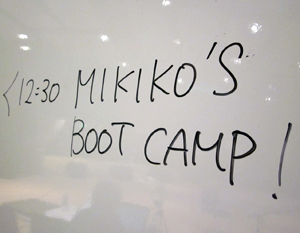 <12:30 MIKIKO'S
BOOT CAMP!